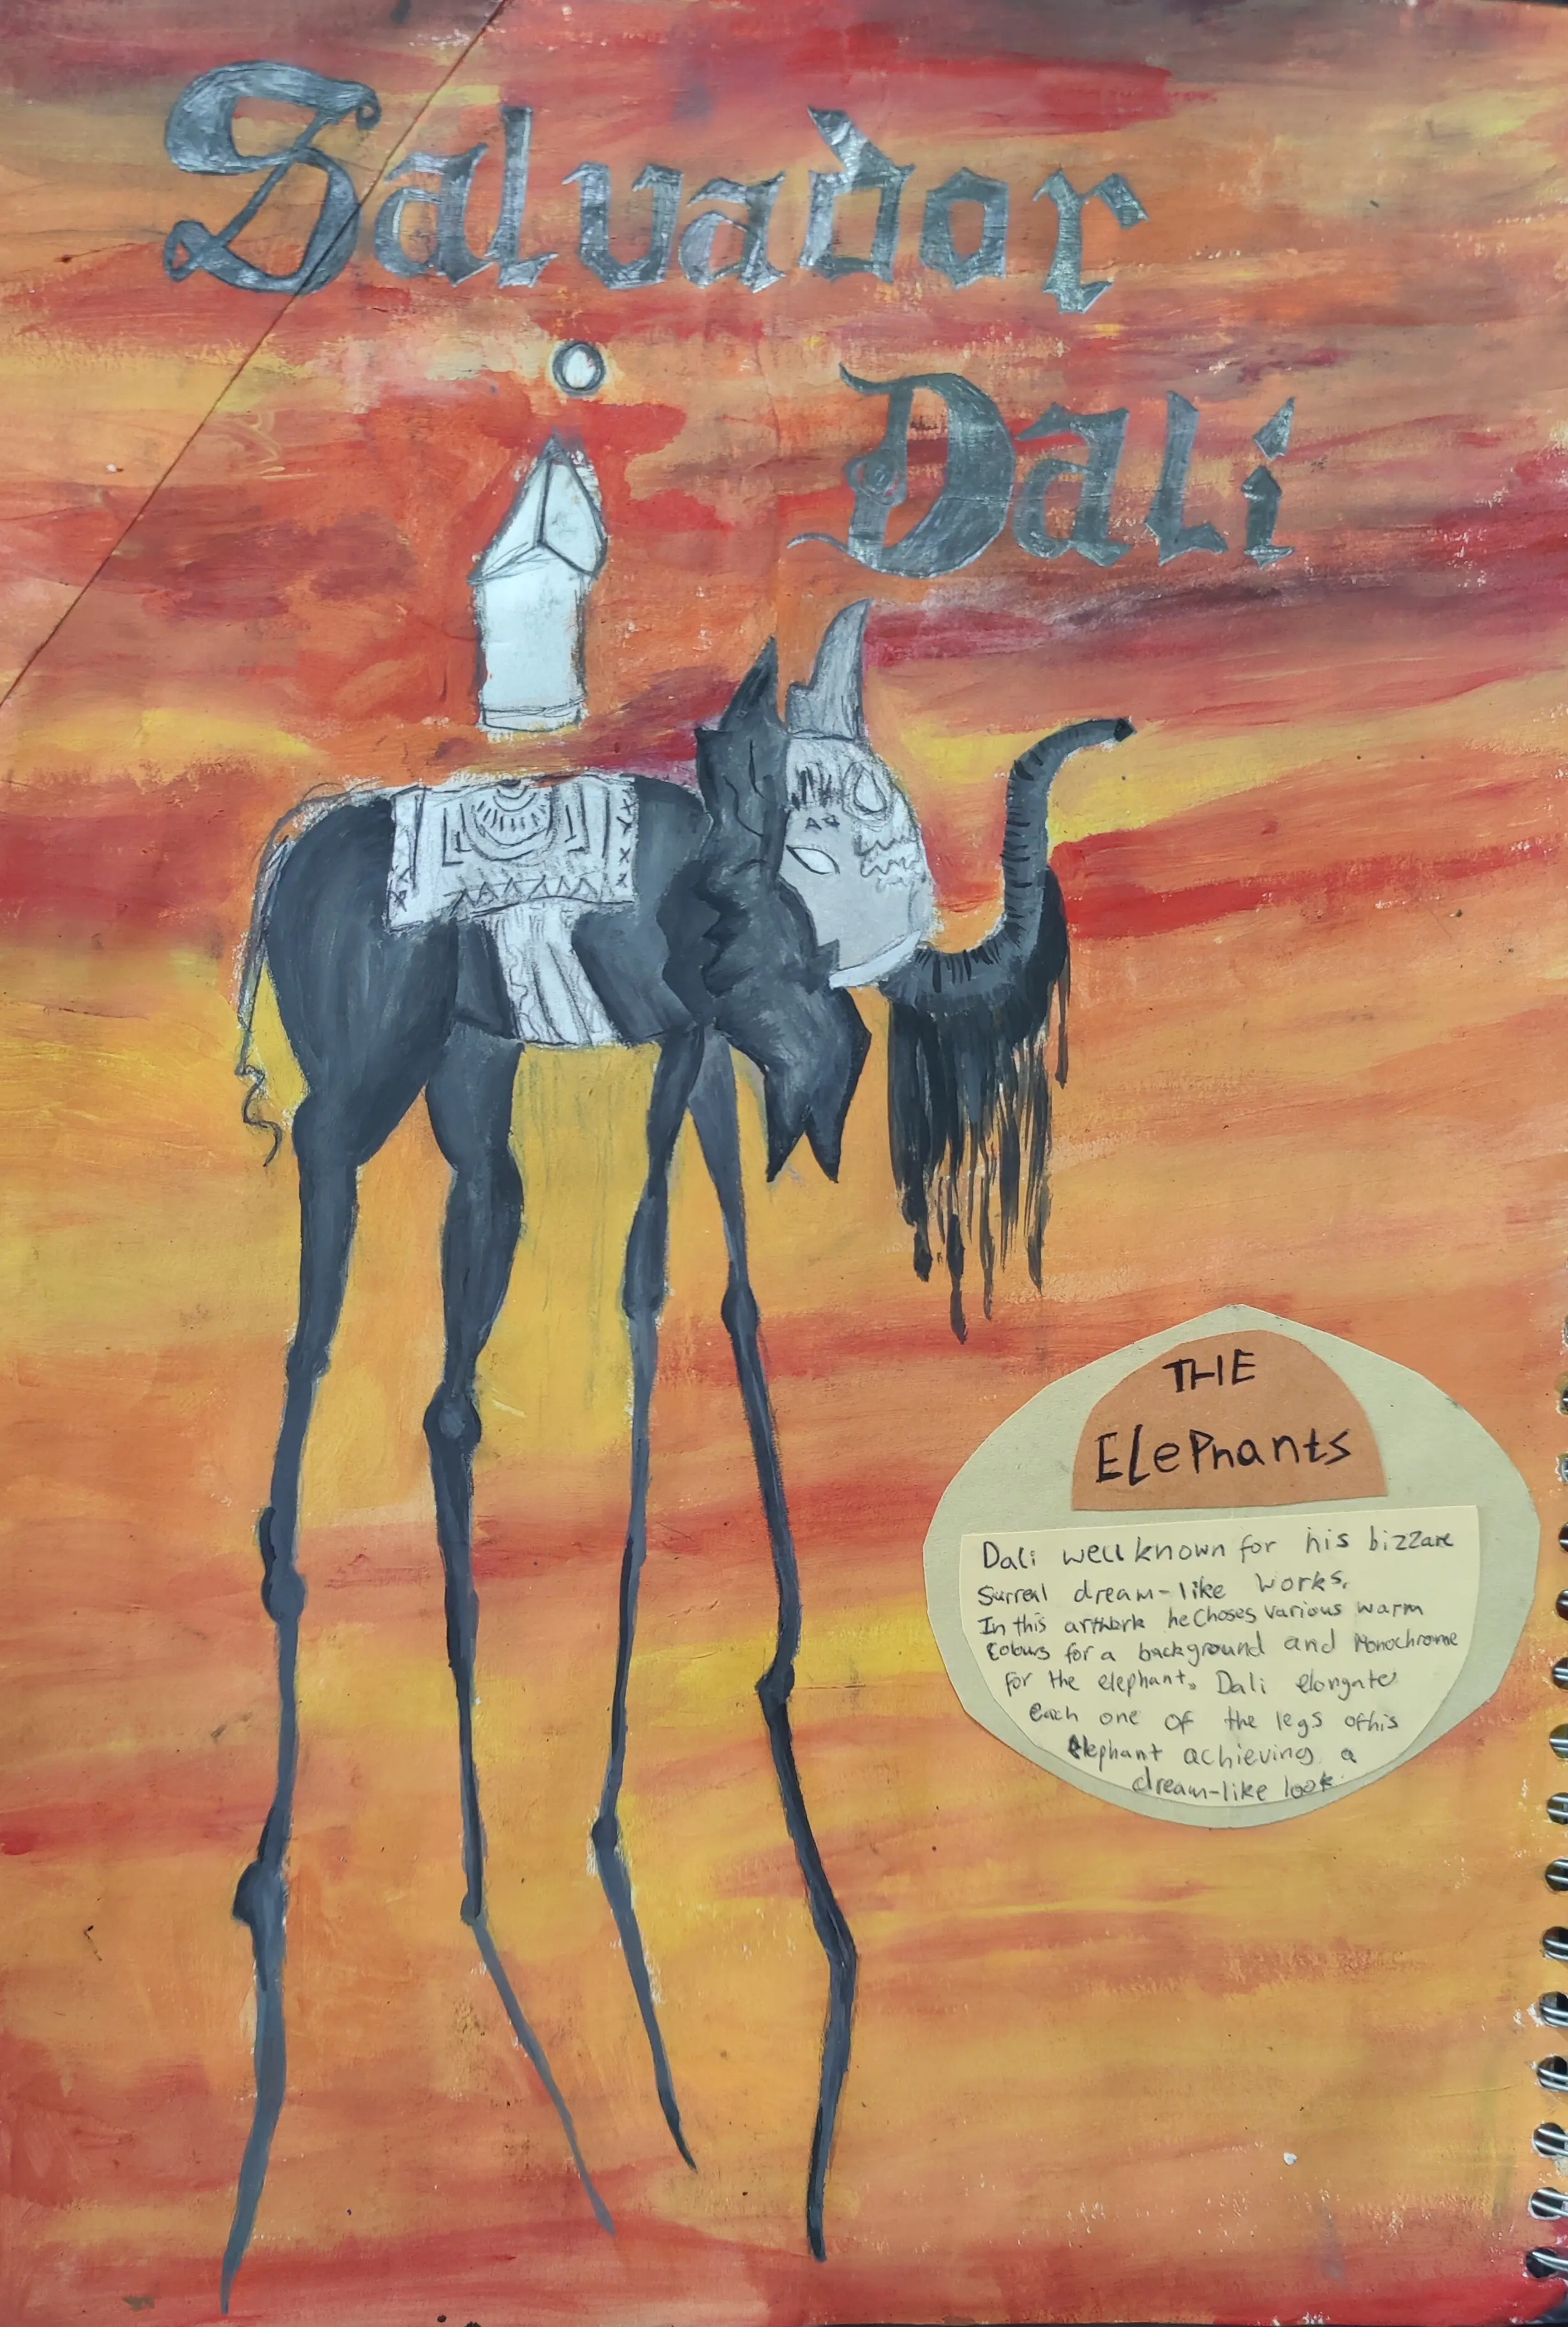 Salvador
Dali
THE
ElePhants
Dali well known for his bizzare
Surreal dream-like works.
In this artwork he Choses various warm
Colours for a background and Monochrome
for the elephant. Dali elongate
each one of the legs of his
elephant achieving a
dream-like look.